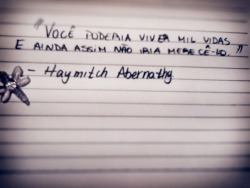 "VOCÊ PODERIA VIVER MIL VIDAS
E AINDA ASSIM NÃO IRIA MERECÊ-LO."
- Haymitch Abernathy